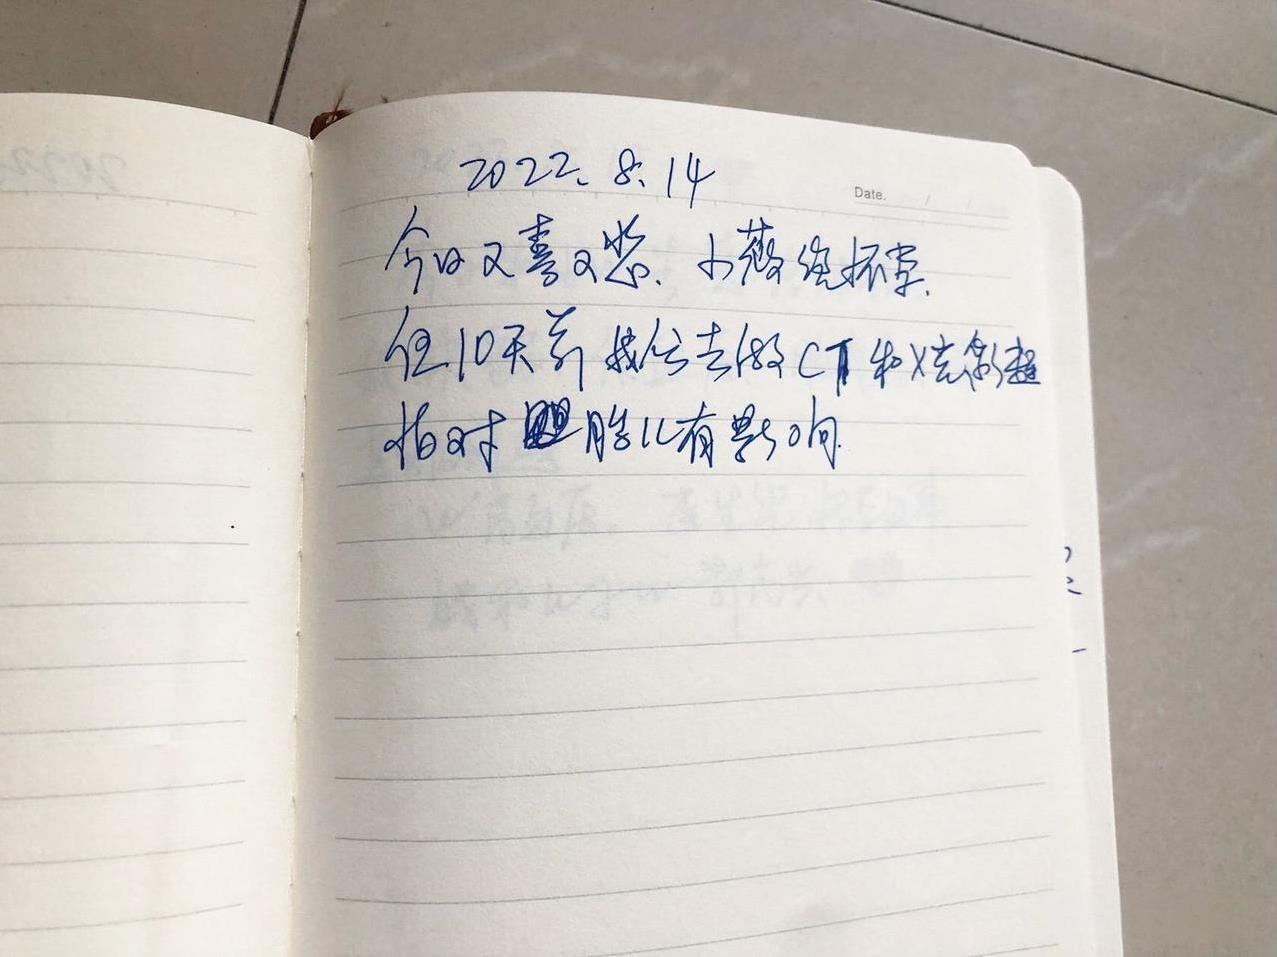 2022.8.14
Date. / /
今日又喜又悲. 小薇终怀孕.
但10天前 我们去做CT和X光彩超
怕对 胎儿有影响.